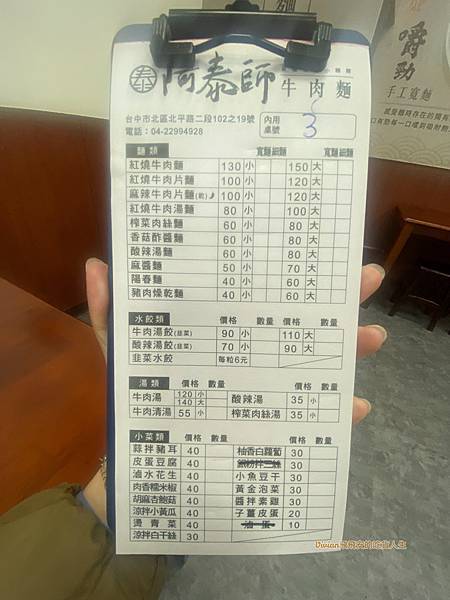 泰 阿泰師 牛肉麵
嚼勁
手工寬麵
台中市北區北平路二段102之19號
電話：04-22994928
內用桌號 3
麵類 寬麵 細麵 寬麵 細麵
紅燒牛肉麵 130 小 150 大
紅燒牛肉片麵 100 小 120 大
麻辣牛肉片麵(乾) 100 小 120 大
紅燒牛肉湯麵 80 小 100 大
榨菜肉絲麵 60 小 80 大
香菇酢醬麵 60 小 80 大
酸辣湯麵 60 小 80 大
麻醬麵 50 小 70 大
陽春麵 40 小 60 大
豬肉燥乾麵 40 小 60 大
水餃類 價格 數量 價格 數量
牛肉湯餃(韭菜) 90 小 110 大
酸辣湯餃(韭菜) 70 小 90 大
韭菜水餃 每粒6元
湯類 價格 數量 價格 數量
牛肉湯 120 小 140 大 酸辣湯 35 小
牛肉清湯 55 小 榨菜肉絲湯 35 小
小菜類 價格 數量 價格 數量
蒜拌豬耳 40 柚香白蘿蔔 30
皮蛋豆腐 40 30
滷水花生 40 小魚豆干 30
肉香糯米椒 40 黃金泡菜 30
胡麻杏鮑菇 40 醬拌素雞 30
涼拌小黃瓜 40 子薑皮蛋 20
燙青菜 40 滷蛋 10
涼拌白干絲 30